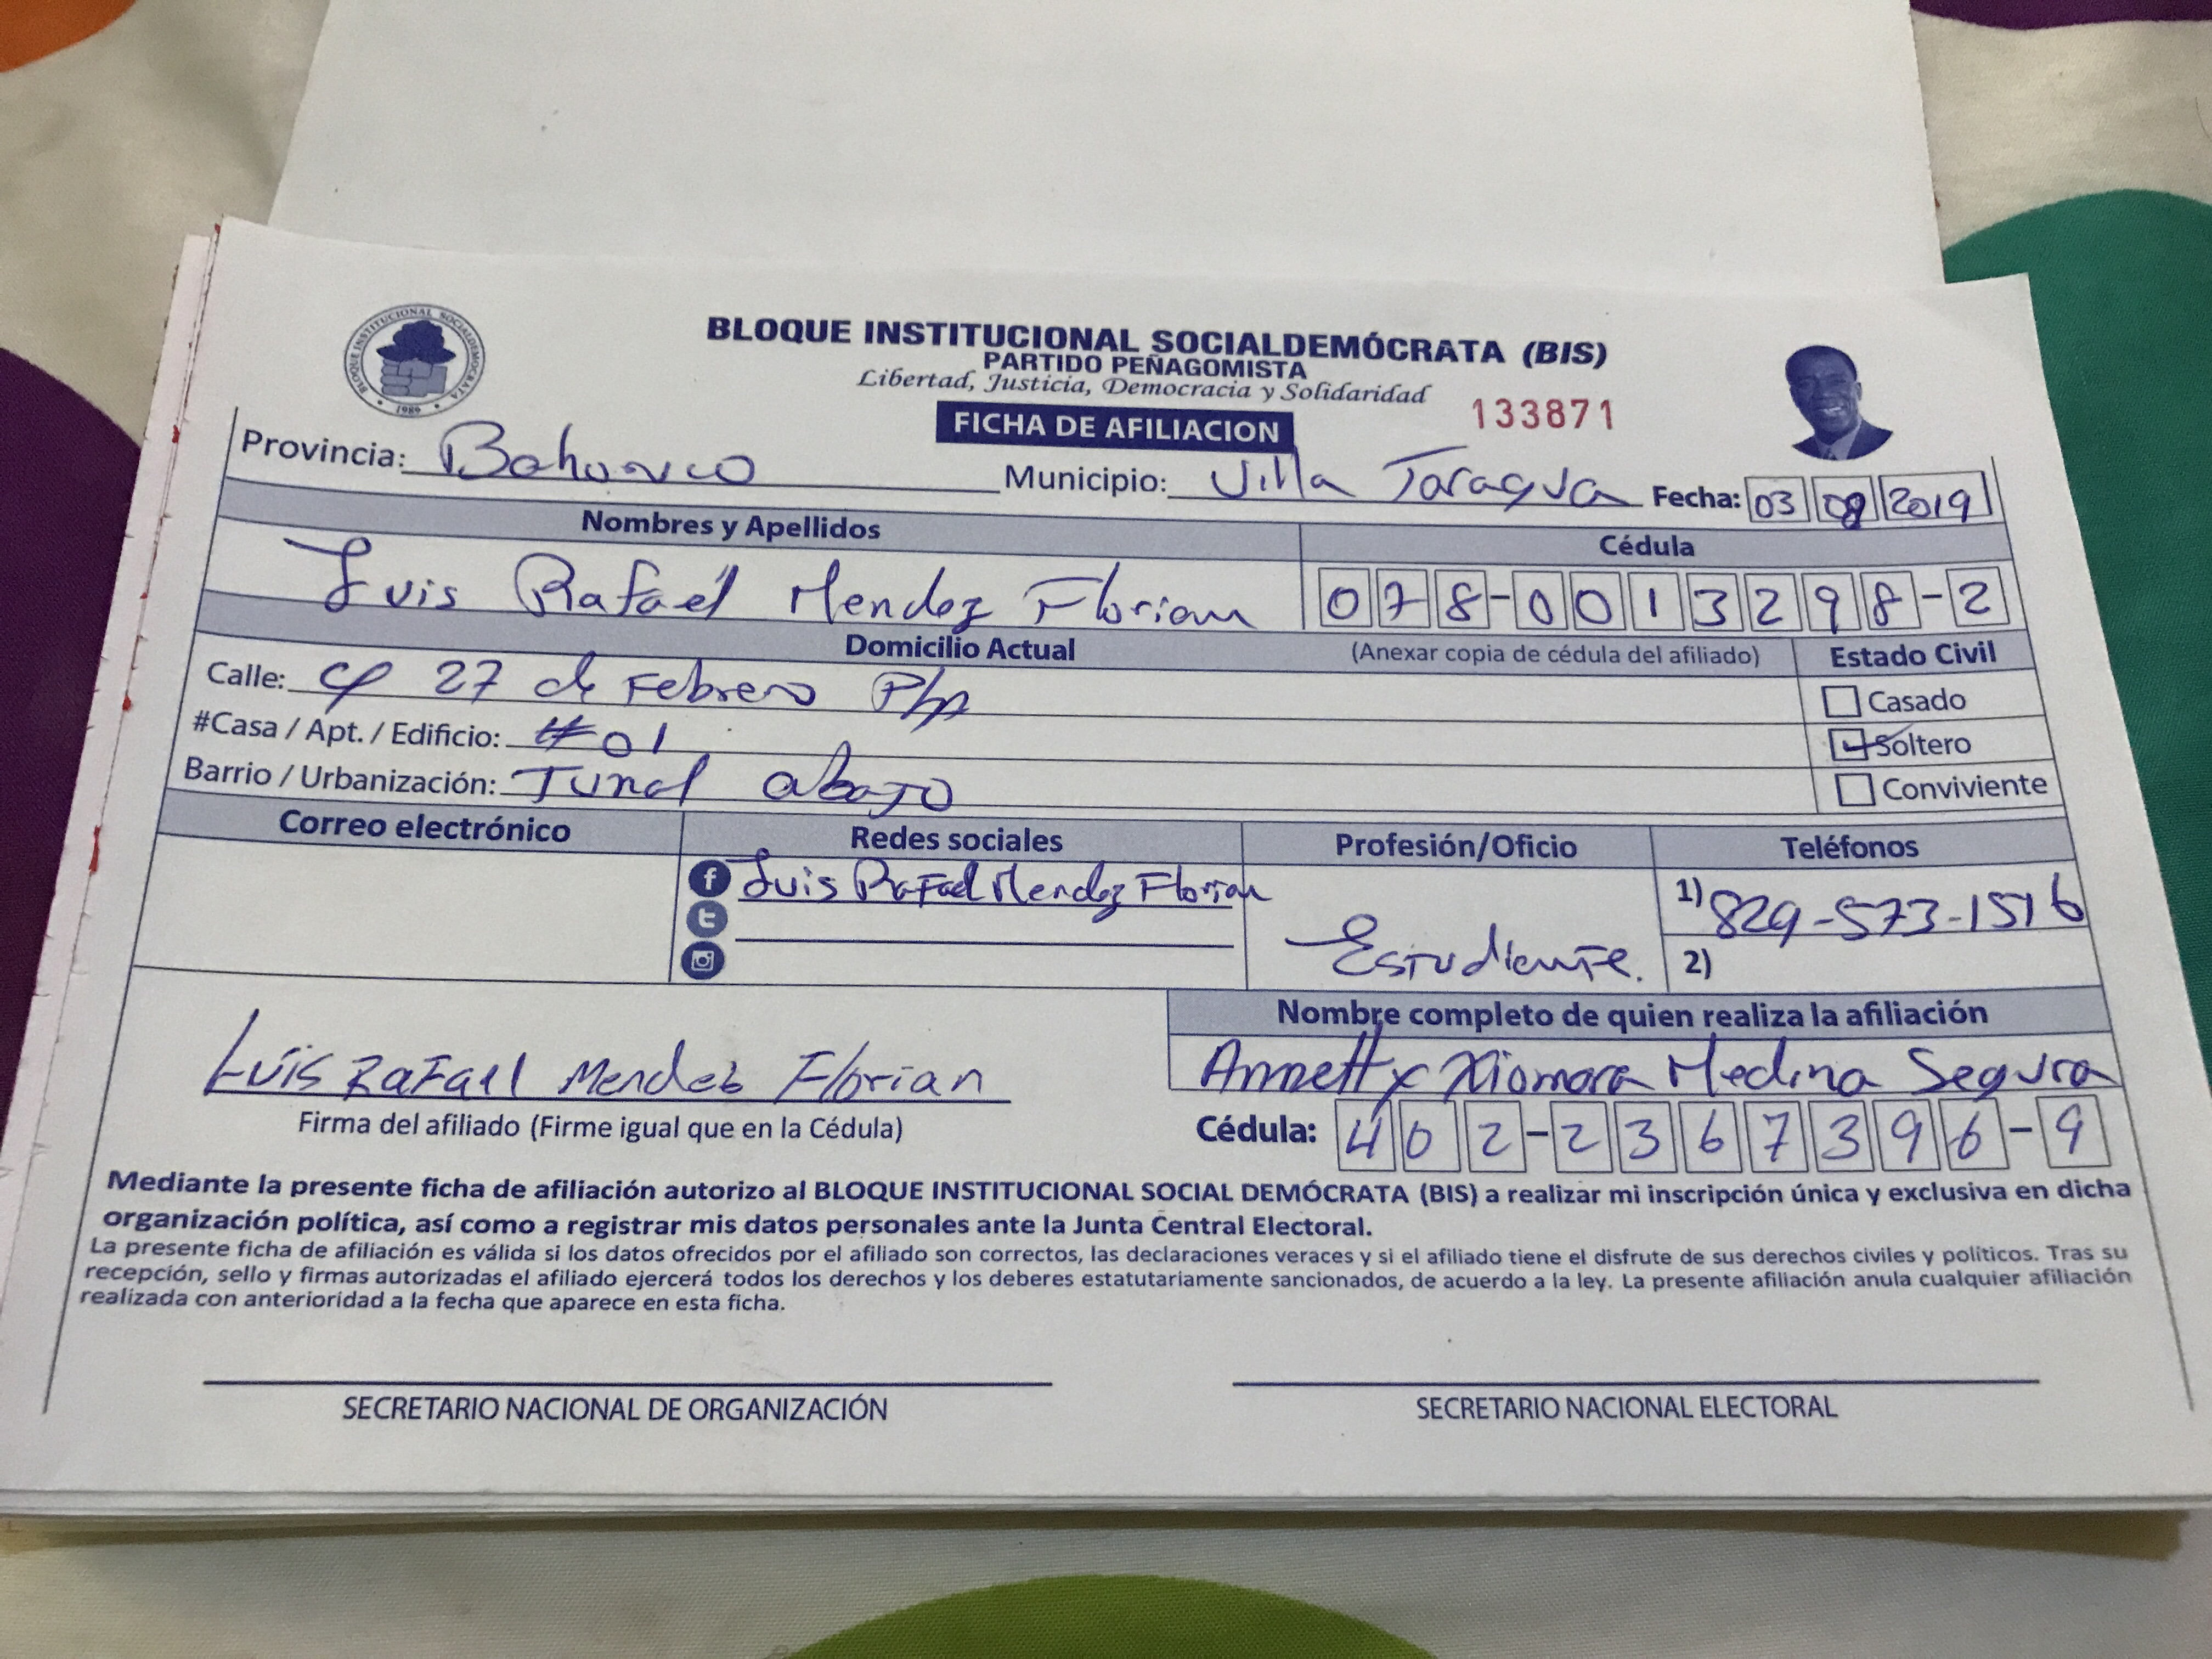 BLOQUE INSTITUCIONAL SOCIALDEMÓCRATA
1989
BLOQUE INSTITUCIONAL SOCIALDEMÓCRATA (BIS)
PARTIDO PEÑAGOMISTA
Libertad, Justicia, Democracia y Solidaridad
FICHA DE AFILIACION 133871
Provincia: Bahoruco Municipio: Villa Jaragua Fecha: 03 08 2019
Nombres y Apellidos Cédula
Luis Rafael Mendez Florian 078-0013298-2
Domicilio Actual (Anexar copia de cédula del afiliado) Estado Civil
Calle: 27 de Febrero P/A Casado
#Casa / Apt. / Edificio: #01 Soltero
Barrio / Urbanización: abajo Conviviente
Correo electrónico Redes sociales Profesión/Oficio Teléfonos
Luis Rafael Mendez Florian Estudiente. 1) 829-573-1516
2)
Nombre completo de quien realiza la afiliación
Luis Rafael Mendez Florian Annetty Xiomara Medina Segura
Firma del afiliado (Firme igual que en la Cédula) Cédula: 402-2367396-9
Mediante la presente ficha de afiliación autorizo al BLOQUE INSTITUCIONAL SOCIAL DEMÓCRATA (BIS) a realizar mi inscripción única y exclusiva en dicha
organización política, así como a registrar mis datos personales ante la Junta Central Electoral.
La presente ficha de afiliación es válida si los datos ofrecidos por el afiliado son correctos, las declaraciones veraces y si el afiliado tiene el disfrute de sus derechos civiles y políticos. Tras su
recepción, sello y firmas autorizadas el afiliado ejercerá todos los derechos y los deberes estatutariamente sancionados, de acuerdo a la ley. La presente afiliación anula cualquier afiliación
realizada con anterioridad a la fecha que aparece en esta ficha.
SECRETARIO NACIONAL DE ORGANIZACIÓN SECRETARIO NACIONAL ELECTORAL